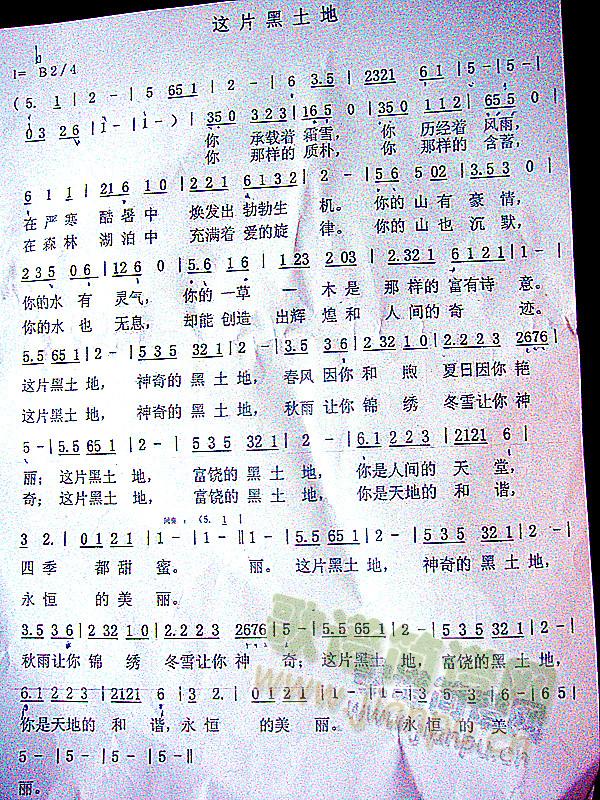 这片黑土地
1= bB 2/4
(5. 1 | 2 - | 5 651 | 2 - | 6 3.5 | 2321 6 1 | 5 - | 5 - |
03 26 | 1 - | 1 - ) | 350 323 | 165 0 | 350 112 | 655 0 |
你 承载着 霜雪， 你 历经着 风雨，
你 那样的 质朴， 你 那样的 含蓄，
6 1 1 | 216 10 | 221 6132 | 2 - | 56 502 | 3.53 0 |
在严寒 酷暑中 焕发出 勃勃生 机。 你的山有豪情，
在森林 湖泊中 充满着 爱的旋 律。 你的山也沉默，
235 06 | 126 0 | 5.6 16 | 1 23 203 | 2.321 6121 | 1 - |
你的水有 灵气， 你的一草 一木是 那样的富有诗 意。
你的水也 无息， 却能创造 出辉煌和 人间的奇 迹。
5.5 651 | 2 - | 535 321 | 2 - | 3.5 36 | 232 10 | 2.223 2676 |
这片黑土 地， 神奇的黑土 地， 春风因你 和煦 夏日因你艳
这片黑土 地， 神奇的黑土 地， 秋雨让你 锦绣 冬雪让你神
5 - | 5.5 651 | 2 - | 535 321 | 2 - | 6.1 223 | 2121 6 |
丽； 这片黑土 地， 富饶的黑土 地， 你是人间的 天堂，
奇； 这片黑土 地， 富饶的黑土 地， 你是天地的 和谐，
(5. 1 |
3 2. | 0121 | 1 - | 1 - ‖ 1 - | 5.5 651 | 2 - | 535 321 | 2 - |
四季 都甜蜜。 丽。 这片黑土 地， 神奇的黑土 地，
永恒 的美丽。
3.5 36 | 232 10 | 2.223 2676 | 5 - | 5.5 651 | 2 - | 535 321 | 2 - |
秋雨让你 锦绣 冬雪让你神 奇； 这片黑土 地， 富饶的黑土 地，
6.1 223 | 2121 6 | 3 2. | 0121 | 1 - | 1 - | 3 2. | 5 6 - | 65 |
你是天地的 和谐， 永恒 的美丽。 永恒 的美
5 - | 5 - | 5 - | 5 - ‖
丽。